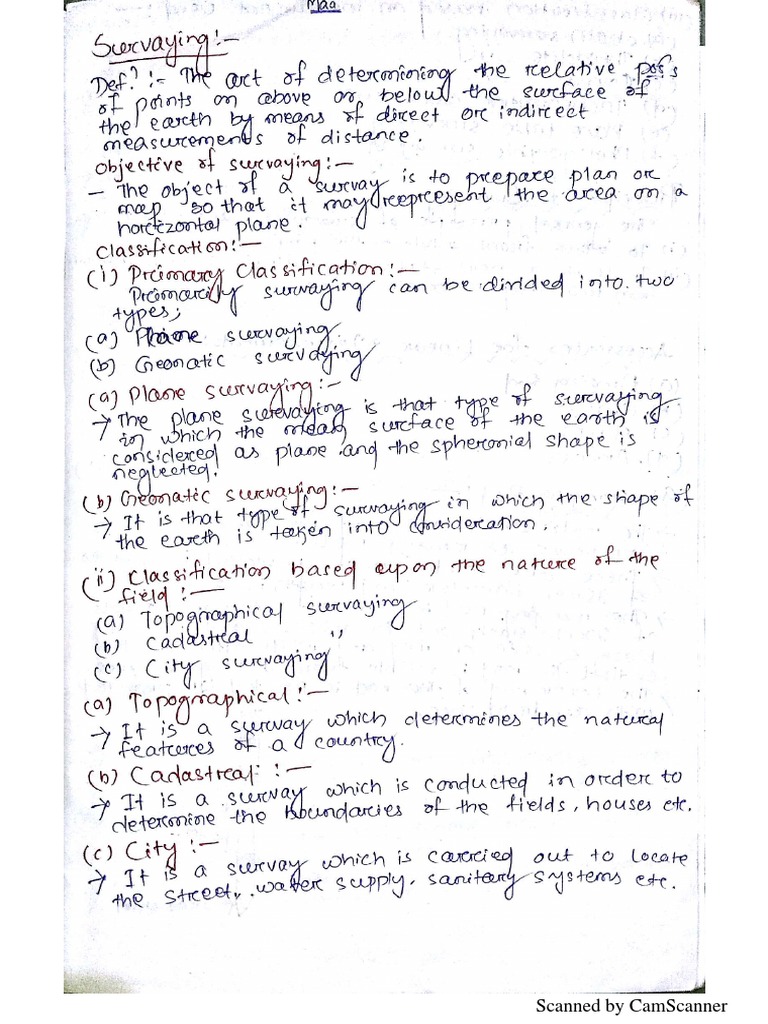 Maa
Survaying :-
Defn :- The art of determining the relative posns
of points on above or below the surface of
the earth by means of direct or indirect
measurements of distance.
Objective of survaying :-
- The object of a survay is to prepare plan or
map so that it may reepresent the area on a
horizzontal plane.
Classification :-
(i) Primary Classification :-
Primarily survaying can be divided into two
types;
(a) Plane survaying
(b) Geonatic survaying
(a) Plane survaying :-
→ The plane survaying is that type of survaying
in which the mean surface of the earth is
considered as plane and the spheronial shape is
neglected.
(b) Geonatic survaying :-
→ It is that type of survaying in which the shape of
the earth is taken into consideration.
(ii) Classification based upon the nature of the
field :-
(a) Topographical survaying
(b) Cadastral "
(c) City survaying
(a) Topographical :-
→ It is a survay which determines the natural
features of a country.
(b) Cadastral :-
→ It is a survay which is conducted in order to
determine the boundaries of the fields, houses etc.
(c) City :-
→ It is a survay which is carried out to locate
the street, water supply, sanitary systems etc.
Scanned by CamScanner